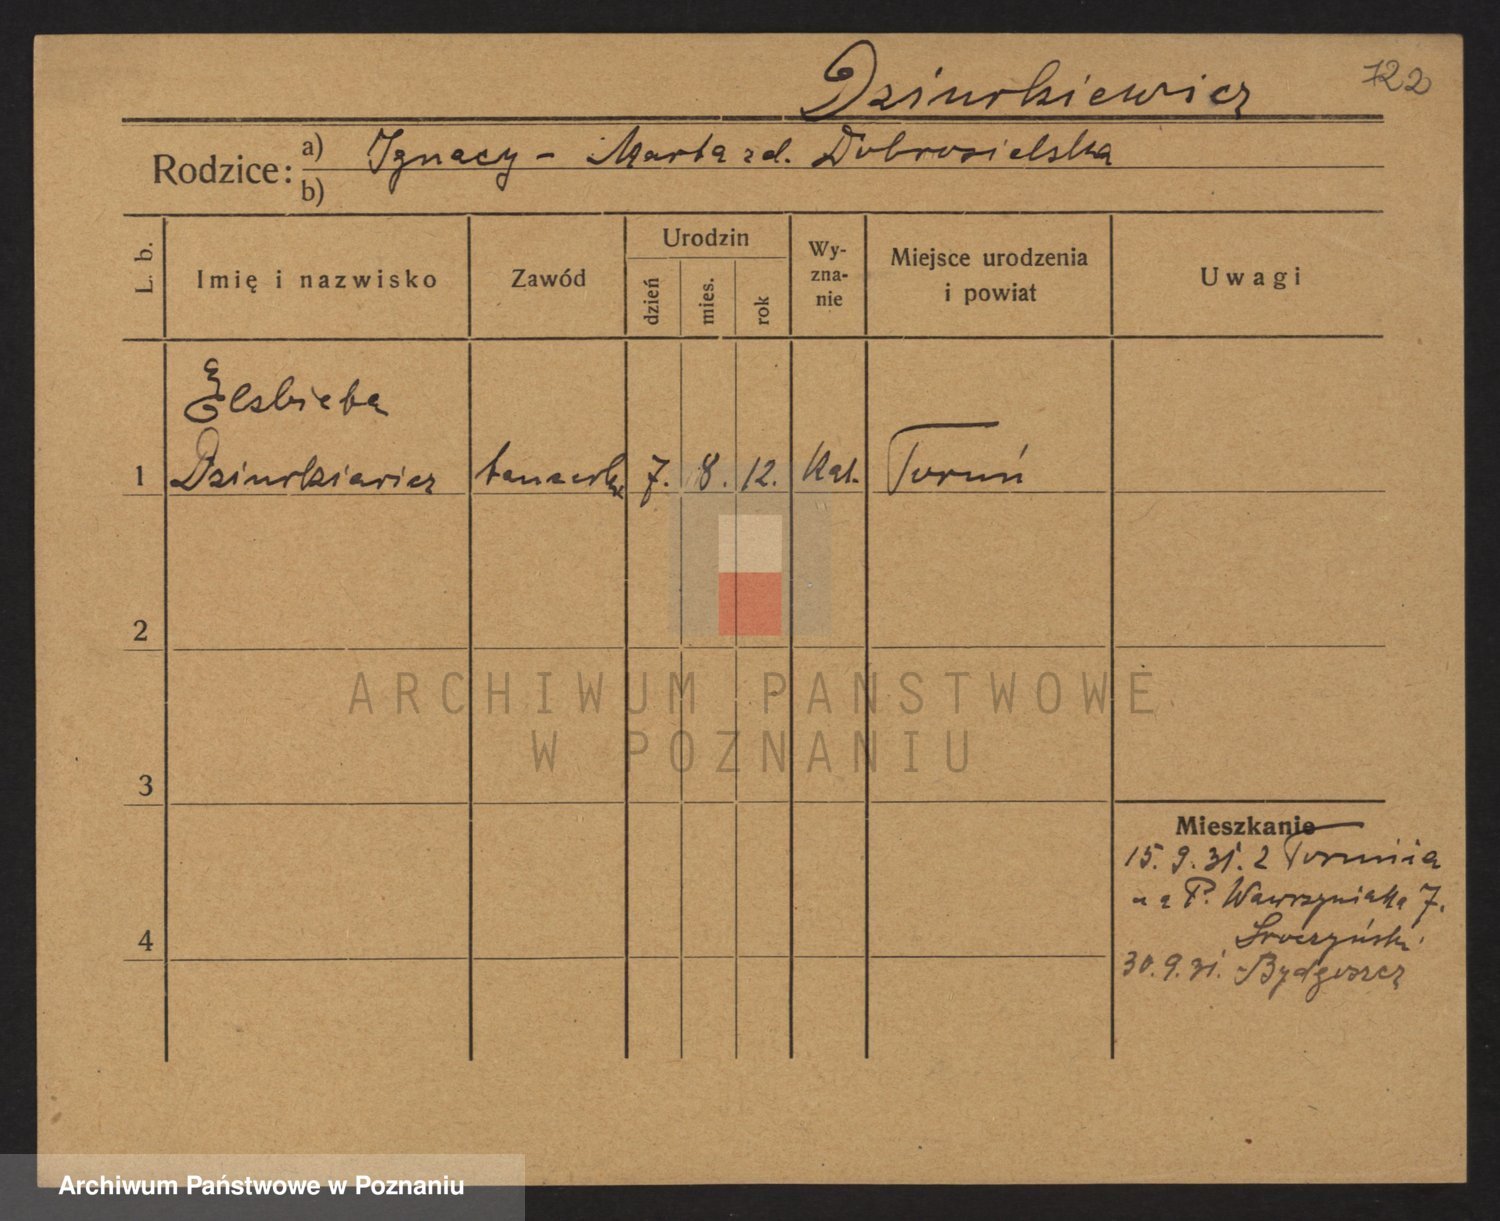 Dziurkiewicz
722
Rodzice: a) Ignacy - Marta zd. Dobrosielska
b)
L. b.
Imię i nazwisko
Zawód
Urodzin
dzień
mies.
rok
Wy-
zna-
nie
Miejsce urodzenia
i powiat
Uwagi
Elzbieta
1 Dziurkiewicz tancerka 7. 8. 12. Kat. Toruń
2
3
4
Mieszkanie
15. 9. 31. z Torunia
na P. Wawrzyniaka 7.
Sroczyński
30. 9. 31. Bydgoszcz
ARCHIWUM PAŃSTWOWE
W POZNANIU
Archiwum Państwowe w Poznaniu